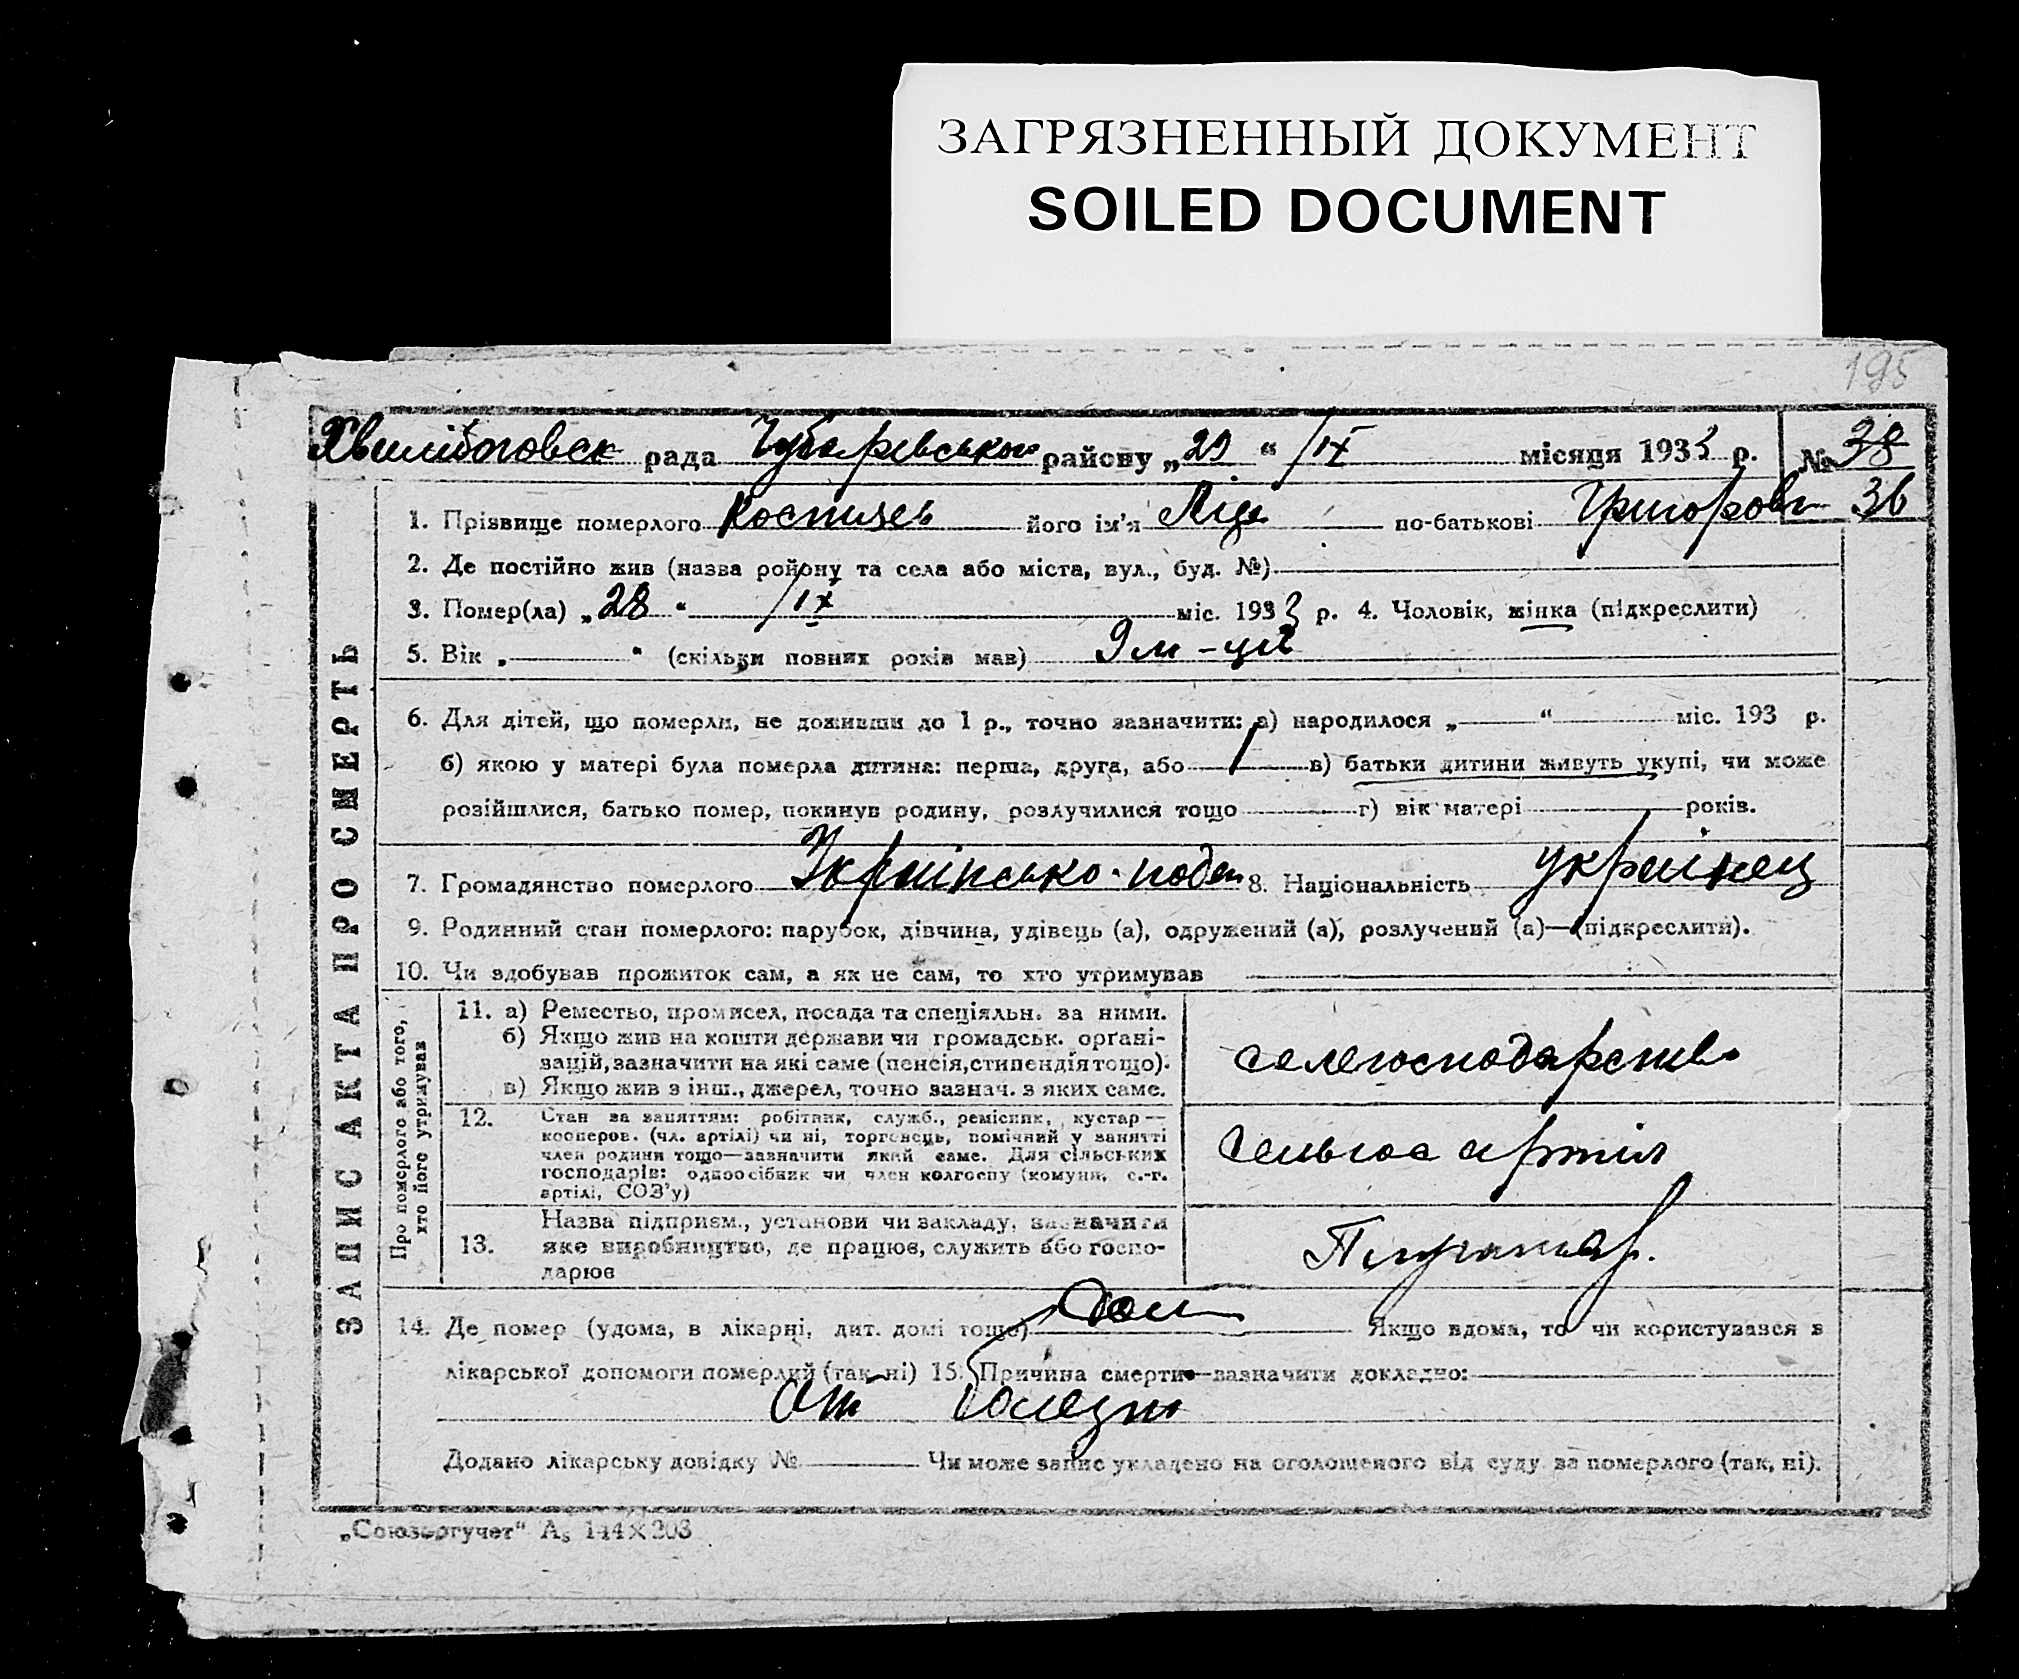 ЗАГРЯЗНЕННЫЙ ДОКУМЕНТ
SOILED DOCUMENT
195
рада Чубаревського району „29“ /IX місяця 1933 р. № 38
36
1. Прізвище померлого його ім'я по-батькові
2. Де постійно жив (назва ройону та села або міста, вул., буд. №)
3. Помер(ла) „28“ /IX міс. 1933 р. 4. Чоловік, жінка (підкреслити)
5. Вік „ “ (скільки повних років мав) 9 м-ців
6. Для дітей, що померли, не доживши до 1 р., точно зазначити: а) народилося „ “ міс. 193 р.
б) якою у матері була померла дитина: перша, друга, або / в) батьки дитини живуть укупі, чи може
розійшлися, батько помер, покинув родину, розлучилися тощо г) вік матері років.
7. Громадянство померлого 8. Національність українец
9. Родинний стан померлого: парубок, дівчина, удівець (а), одружений (а), розлучений (а)—(підкреслити).
10. Чи здобував прожиток сам, а як не сам, то хто утримував
ЗАПИС АКТА ПРО СМЕРТЬ
Про померлого або того, хто його утримував
11. а) Ремество, промисел, посада та спеціяльн. за ними.
б) Якщо жив на кошти держави чи громадськ. органі-
зацій, зазначити на які саме (пенсія, стипендія тощо).
в) Якщо жив з інш., джерел, точно зазнач. з яких саме.
12. Стан за заняттям: робітник, служб., ремісник, кустар—
кооперов. (чл. артілі) чи ні, торговець, помічний у занятті
член родини тощо—зазначити який саме. Для сільських
господарів: одноосібник чи член колгоспу (комуни, с.-г.
артілі, СОЗ'у)
13. Назва підприєм., установи чи закладу, зазначити
яке виробництво, де працює, служить або госпо-
дарює
14. Де помер (удома, в лікарні, дит. домі тощо) Якщо вдома, то чи користувався з
лікарської допомоги померлий (так, ні) 15. Причина смерти—зазначити докладно:
От
Додано лікарську довідку № Чи може запис укладено на оголошеного від суду за померлого (так, ні).
„Союзоргучет“ А5 144×203